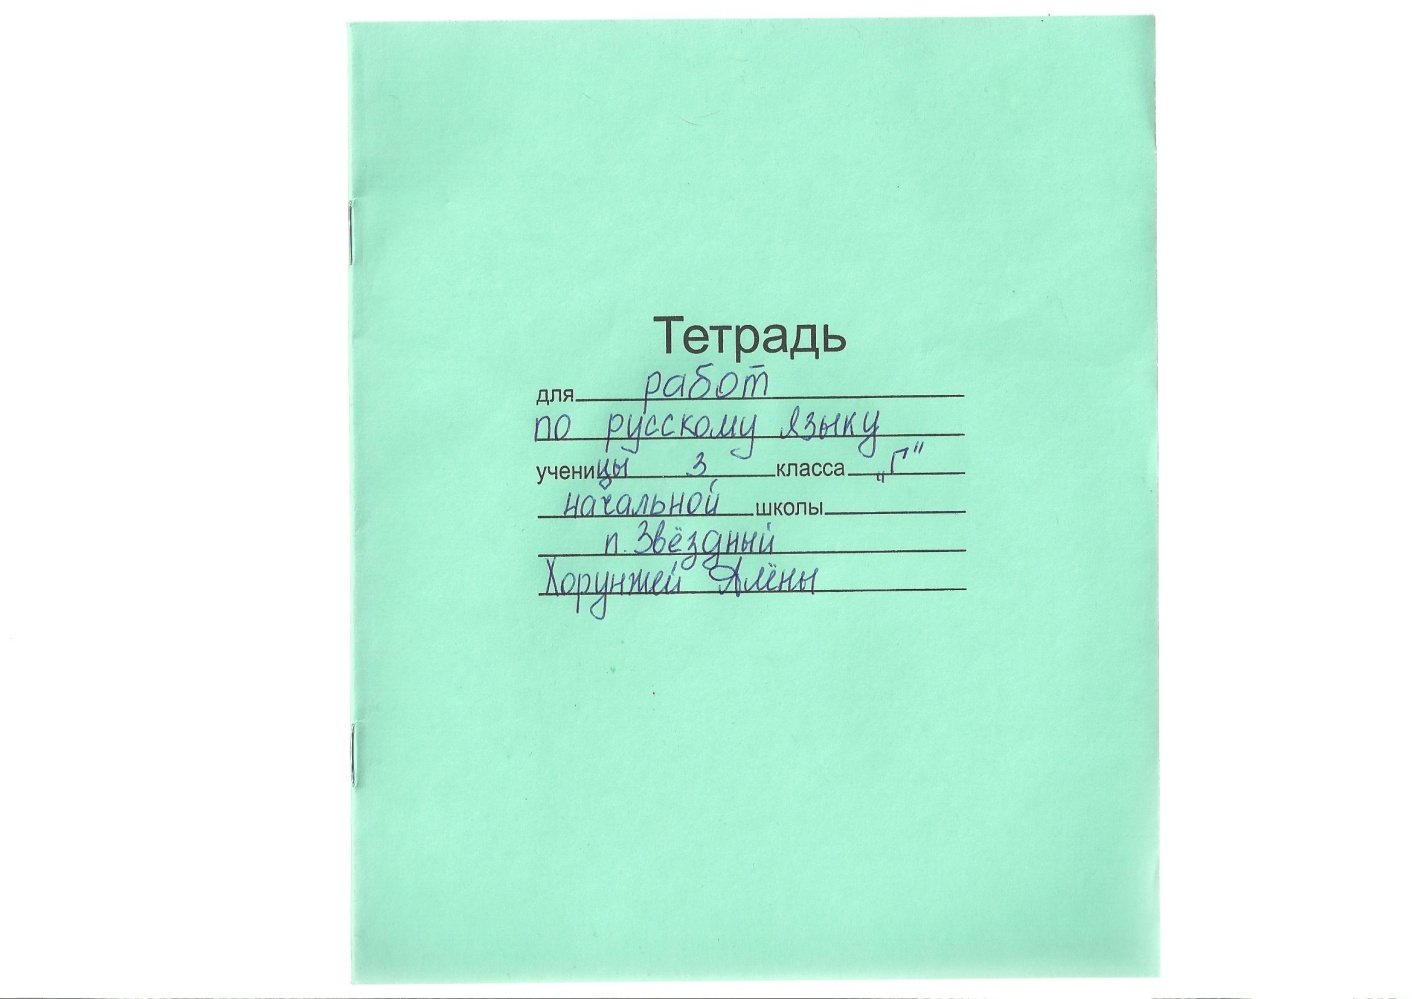 Тетрадь
для работ
по русскому языку
ученицы 3 класса „Г"
начальной школы
п. Звёздный
Хорунжей Алёны